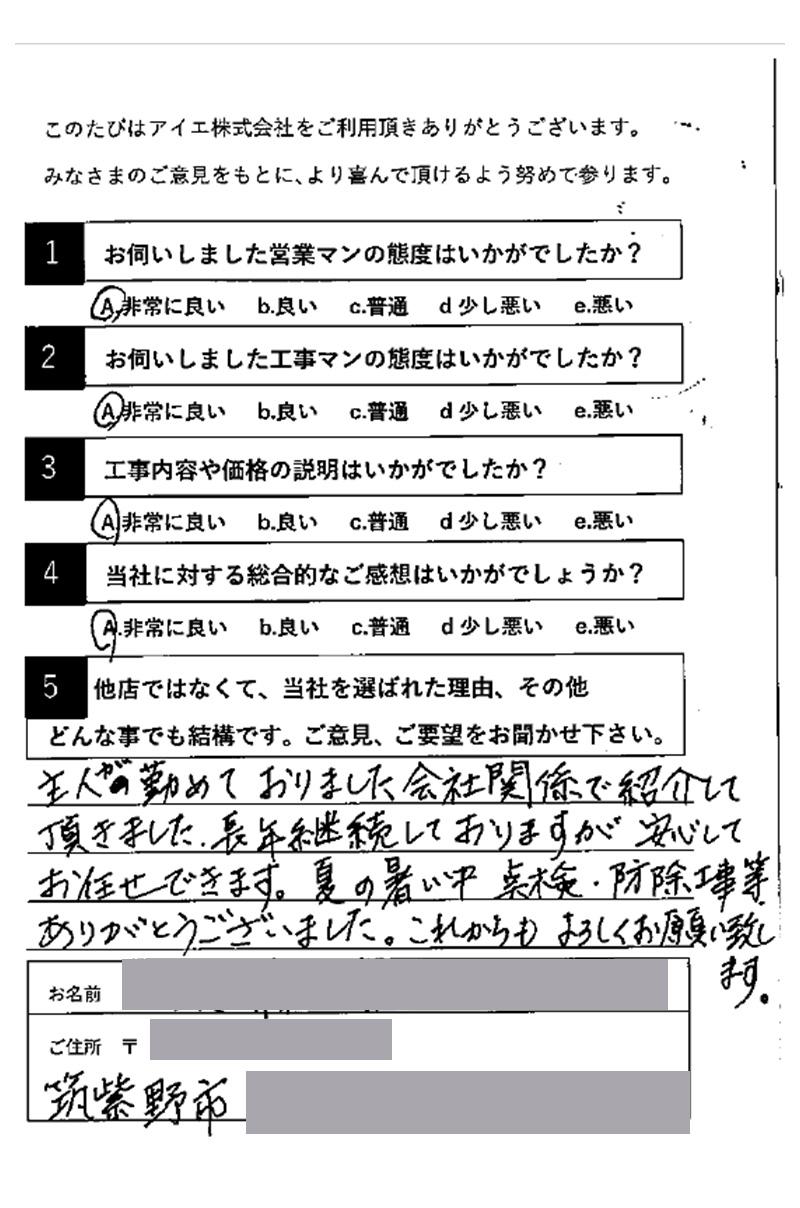 このたびはアイエ株式会社をご利用頂きありがとうございます。
みなさまのご意見をもとに、より喜んで頂けるよう努めて参ります。
1 お伺いしました営業マンの態度はいかがでしたか？
A.非常に良い b.良い c.普通 d 少し悪い e.悪い
2 お伺いしました工事マンの態度はいかがでしたか？
A.非常に良い b.良い c.普通 d 少し悪い e.悪い
3 工事内容や価格の説明はいかがでしたか？
A.非常に良い b.良い c.普通 d 少し悪い e.悪い
4 当社に対する総合的なご感想はいかがでしょうか？
A.非常に良い b.良い c.普通 d 少し悪い e.悪い
5 他店ではなくて、当社を選ばれた理由、その他
どんな事でも結構です。ご意見、ご要望をお聞かせ下さい。
主人が勤めておりました会社関係で紹介して
頂きました。長年継続しておりますが安心して
お任せできます。夏の暑い中点検・防除工事等
ありがとうございました。これからもよろしくお願い致し
ます。
お名前
ご住所 〒
筑紫野市